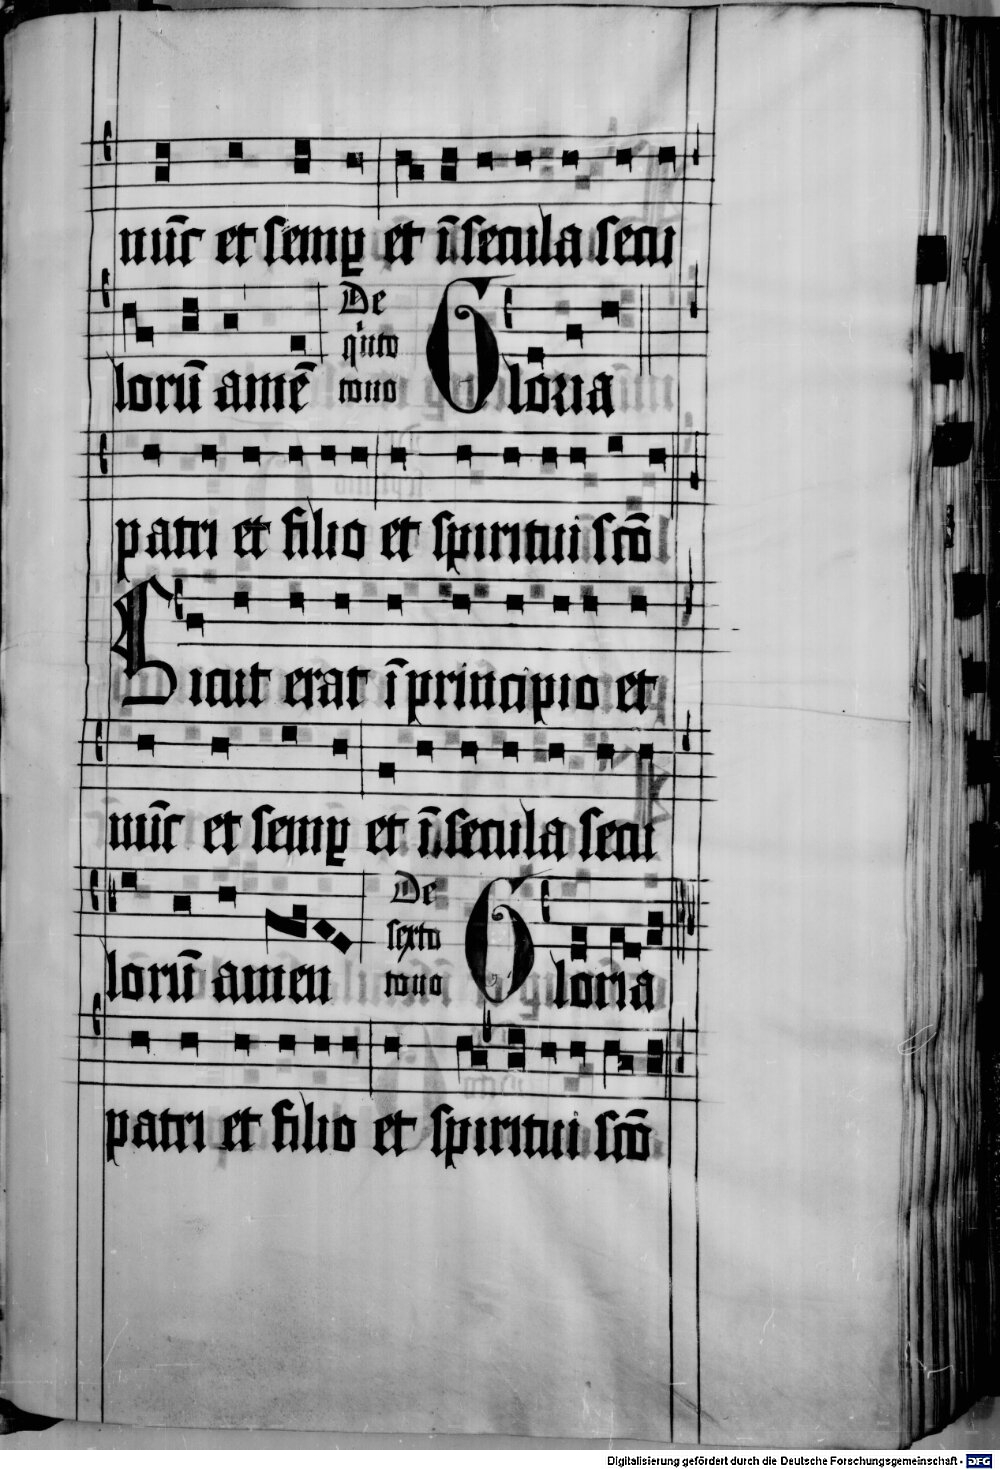 nūc et semꝑ et ī secula secu
lorū amē De quito tono Gloria
patri et filio et spiritui scō
Sicut erat ī principio et
nūc et semꝑ et ī secula secu
lorū amen De sexto tono Gloria
patri et filio et spiritui scō
Digitalisierung gefördert durch die Deutsche Forschungsgemeinschaft - DFG